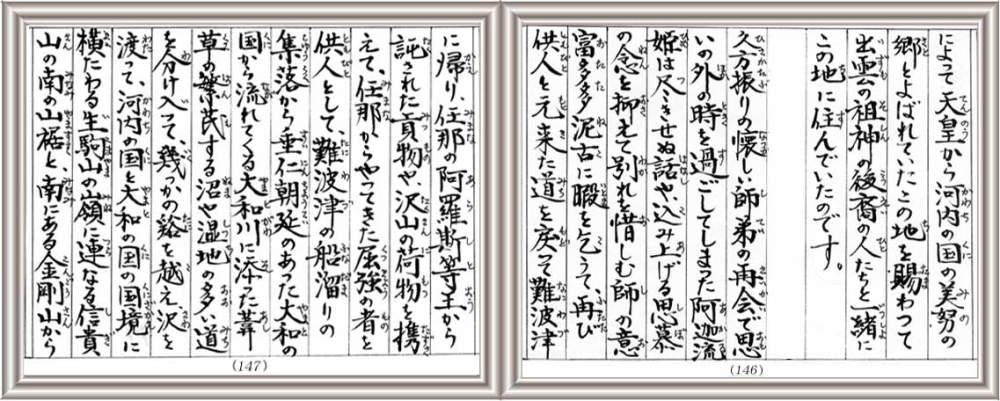 によって天皇から河内の国の美努の
郷とよばれていたこの地を賜わって
出雲の祖神の後裔の人たちと一緒に
この地に住んでいたのです。
久方振りの懐しい師弟の再会で思
いの外の時を過ごしてしまった阿迦流
姫は尽きせぬ話や、込み上げる思慕
の念を抑えて別れを惜しむ師の意
富多多泥古に暇を乞うて、再び
供人と元来た道を戻って難波津
(146)
に帰り、任那の阿羅斯等王から
託された貢物や、沢山の荷物を携
えて、任那からやってきた屈強の者を
供人として、難波津の船溜りの
集落から垂仁朝廷のあった大和の
国から流れてくる大和川に添った葦
草の繁茂する沼や湿地の多い道
を分け入って、幾つかの谿を越え、沢を
渡って、河内の国と大和の国の国境に
横たわる生駒山の山嶺に連なる信貴
山の南の山裾と、南にある金剛山から
(147)